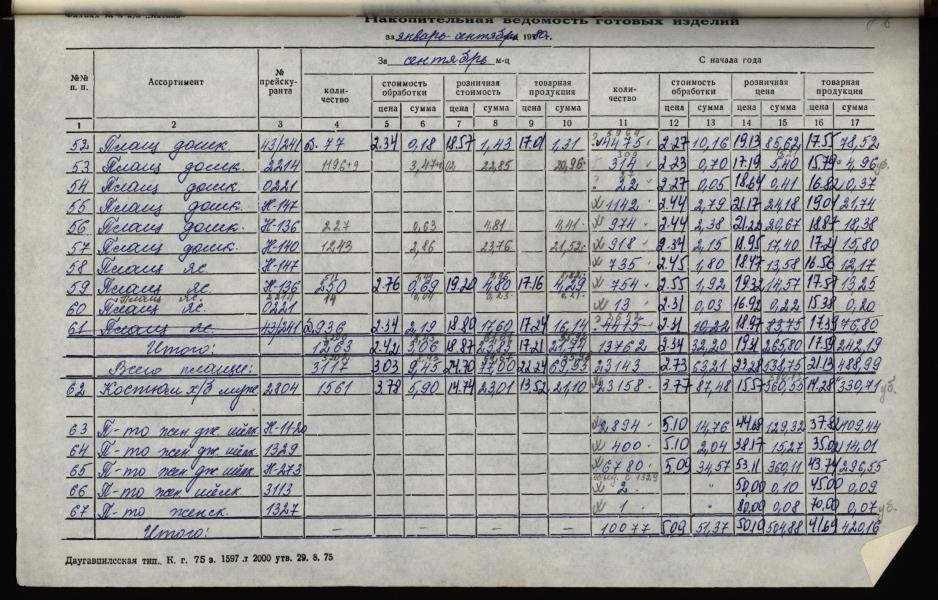 Накопительная ведомость готовых изделий
за январь-сентябрь 1980 г.
№№ п. п. Ассортимент № прейскуранта За сентябрь м-ц С начала года
количество стоимость обработки розничная стоимость товарная продукция количество стоимость обработки розничная цена товарная продукция
цена сумма цена сумма цена сумма цена сумма цена сумма цена сумма
1 2 3 4 5 6 7 8 9 10 11 12 13 14 15 16 17
52 Плащ дошк. 43/241 77 2.34 0,18 18.57 1,43 17.01 1,31 4475 2.27 10,16 19.13 85,62 17.55 78,52
53 Плащ дошк. 2214 22,85 20,96 314 2.23 0,70 17.19 5,40 15.79 4,96
54 Плащ дошк. 0221 22 2.27 0,05 18.64 0,41 16.82 0,37
55 Плащ дошк. Н-147 1142 2.44 2,79 21.17 24,18 19.04 21,74
56 Плащ дошк. Н-136 227 0,63 4,81 4,41 974 2.44 2,38 21.22 20,67 18.87 18,38
57 Плащ дошк. Н-140 1243 2,86 23,76 21,52 918 2.34 2,15 18.95 17,40 17.21 15,80
58 Плащ яс. Н-147 735 2.45 1,80 18.47 13,58 16.56 12,17
59 Плащ яс. Н-136 250 2.76 0,69 19.20 4,80 17.16 4,29 754 2.55 1,92 19.32 14,57 17.57 13,25
60 Плащ яс. 0221 14 13 2.31 0,03 16.92 0,22 15.38 0,20
61 Плащ яс. 43/241 936 2.34 2,19 18.80 17,60 17.24 16,14 4415 2.31 10,22 18.97 83,75 17.39 76,80
Итого: 1263 2.42 3,06 18.87 17.21 21,74 13762 2.34 32,20 19.31 265,80 17.59 242,19
Всего плаще: 3117 3.03 9,45 24.70 77,00 22.24 69,33 23143 2.73 63,21 23.28 538,75 21.13 488,99
62 Костюм х/б муж 2804 1561 3.78 5,90 14.74 23,01 13.52 21,10 23158 3.77 87,48 15.57 360,55 14.28 330,71
63 П-то жен дж. шёлк Н-112а 2894 5.10 14,76 44.68 129,32 37.82 109,44
64 П-то жен дж. шёлк 1329 400 5.10 2,04 38.17 15,27 35.02 14,01
65 П-то жен дж шёлк Н-273 6780 5.09 34,57 53.11 360,11 43.74 296,55
66 П-то жен шёлк 3113 2 " 50,00 0,10 45.00 0,09
67 П-то женск. 1327 1 80,00 0,08 70.00 0,07
Итого: — — — — — — — 10077 5.09 51,37 50.10 504,88 41.69 420,16
Даугавпилсская тип., К. г. 75 з. 1597 .т 2000 утв. 29. 8. 75